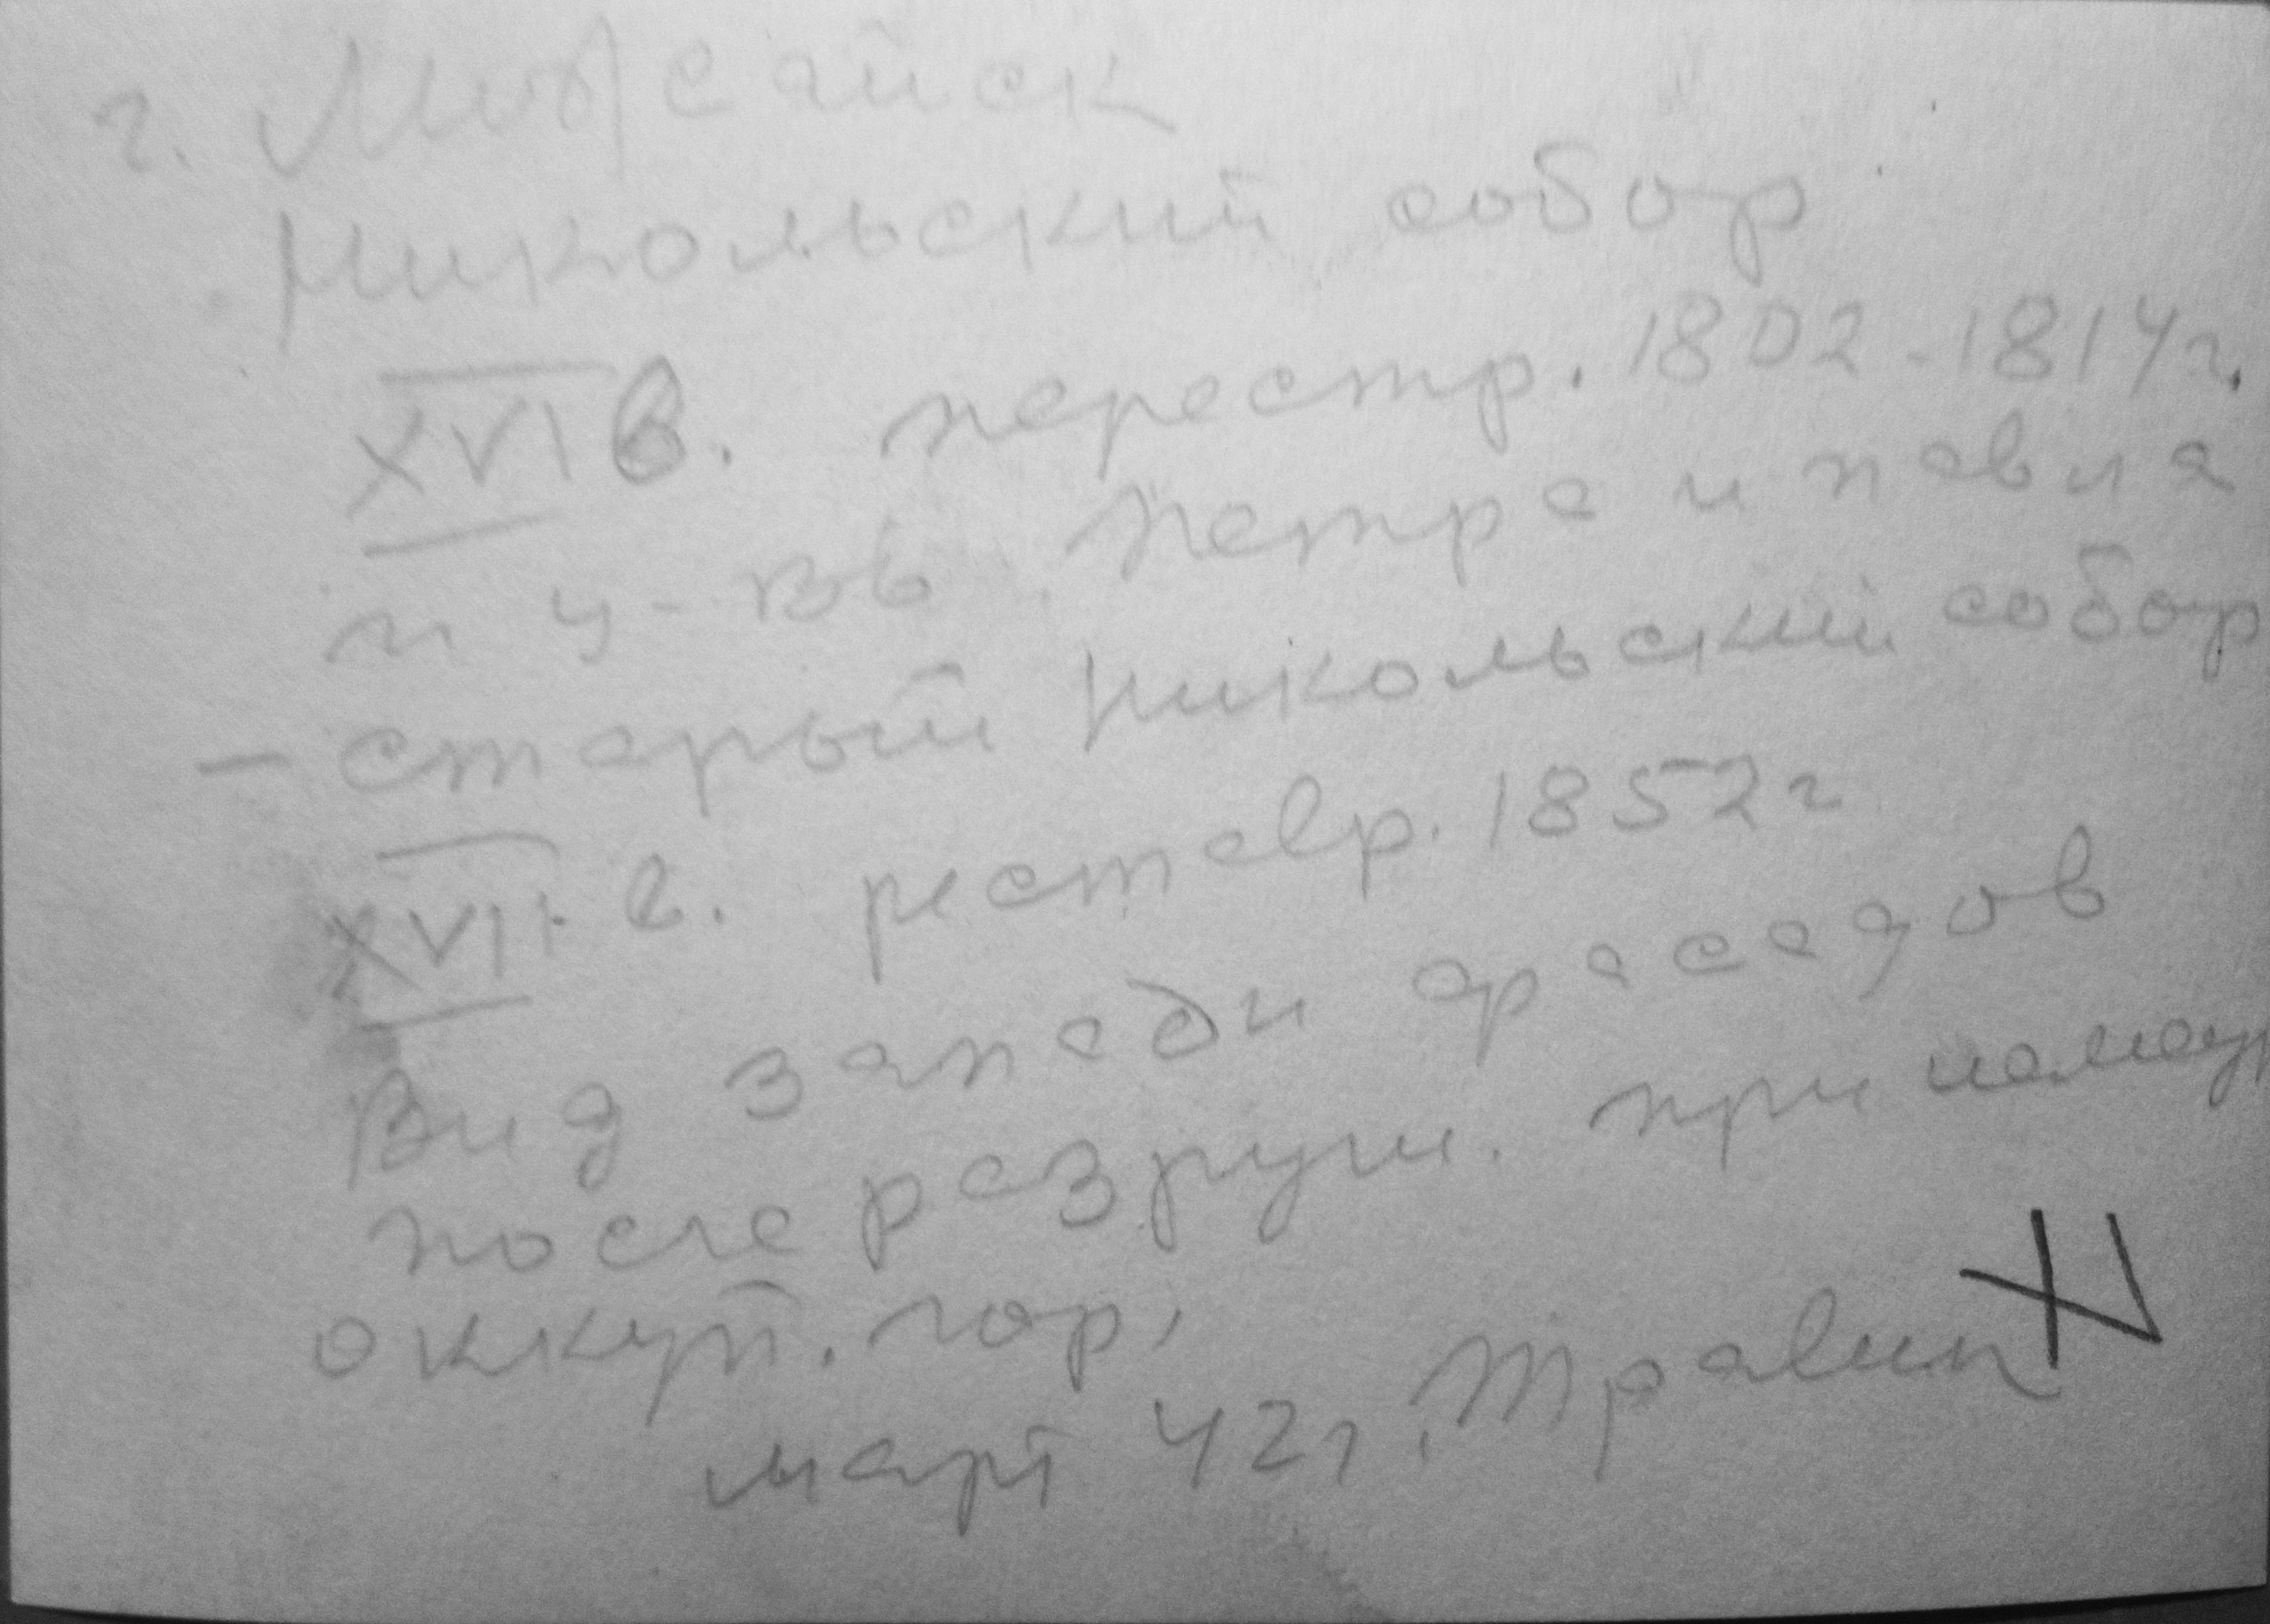 г. Можайск
Никольский собор
XVI в. перестр. 1802-1814г.
и ц-вь Петра и Павла
- старый Никольский собор
XVII в. реставр. 1852г
Вид запади фасадов
после разруш. при
оккуп. гор.
март 42г. Травин